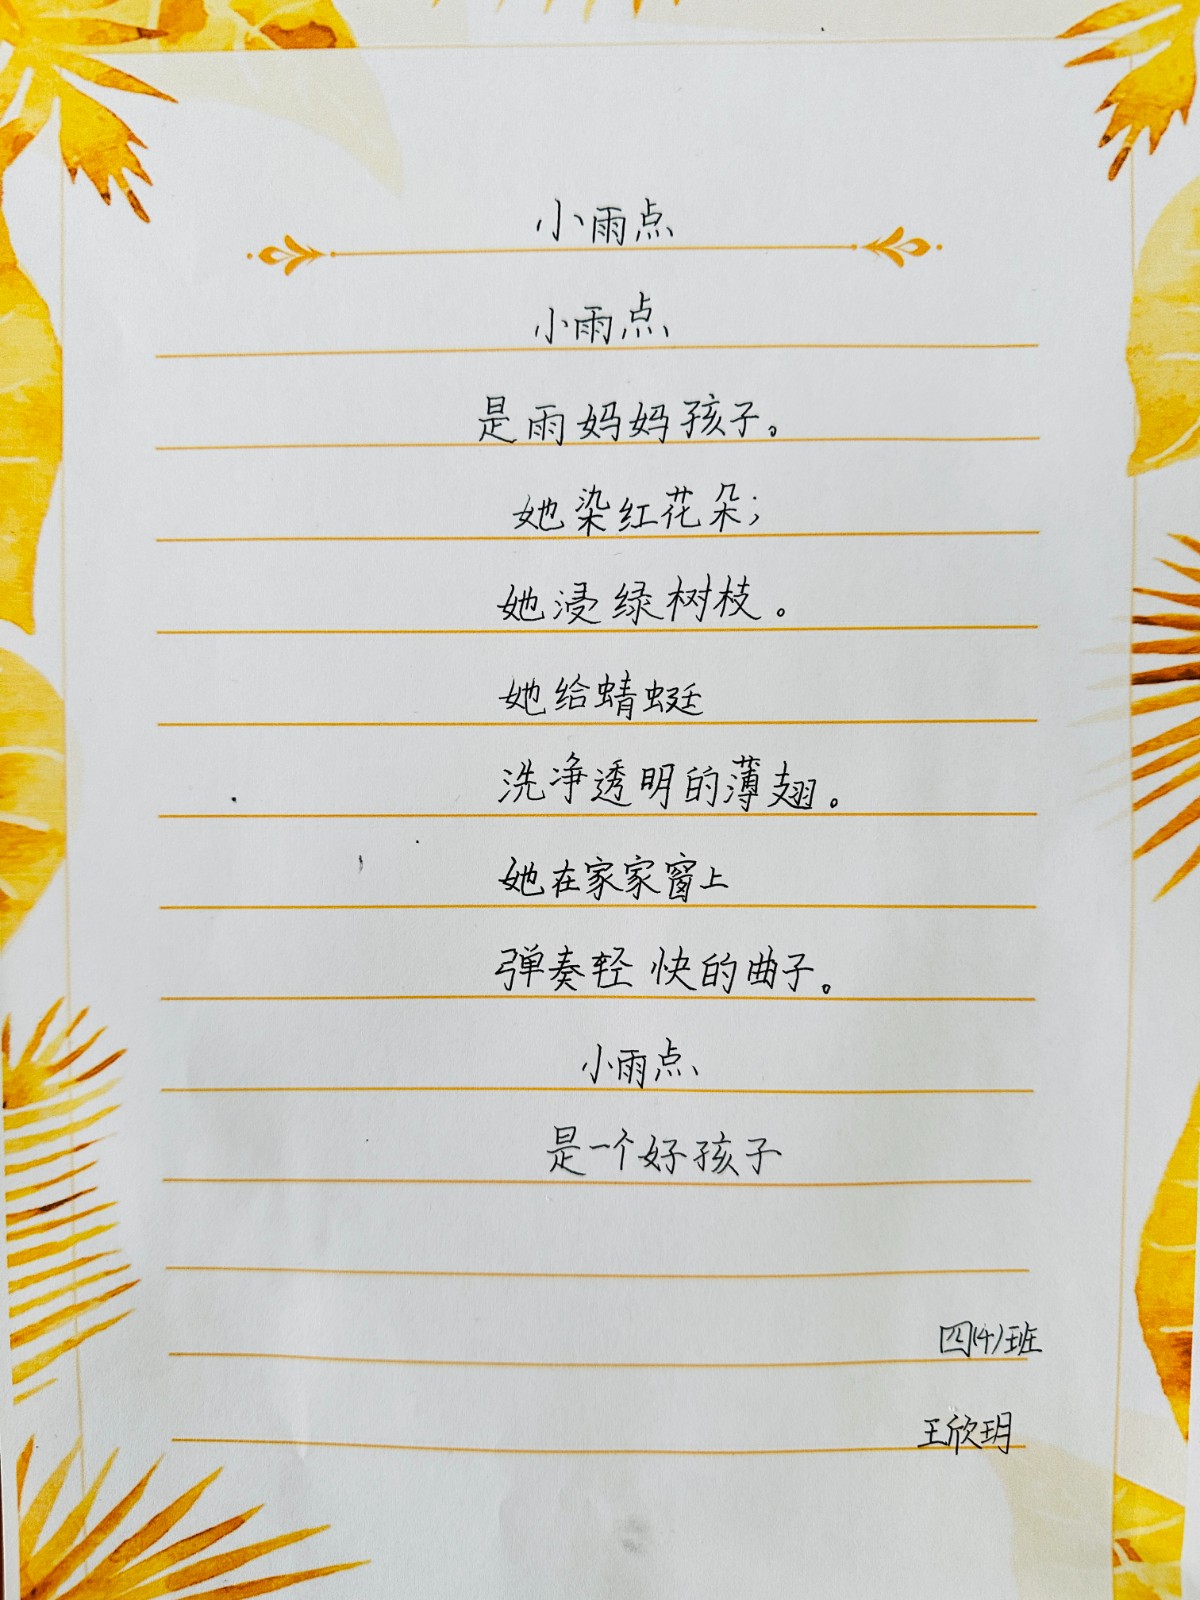 小雨点
小雨点、
是雨妈妈孩子。
她染红花朵;
她浸绿树枝。
她给蜻蜓
洗净透明的薄翅。
她在家家窗上
弹奏轻快的曲子。
小雨点、
是一个好孩子
四(4)班
王欣玥